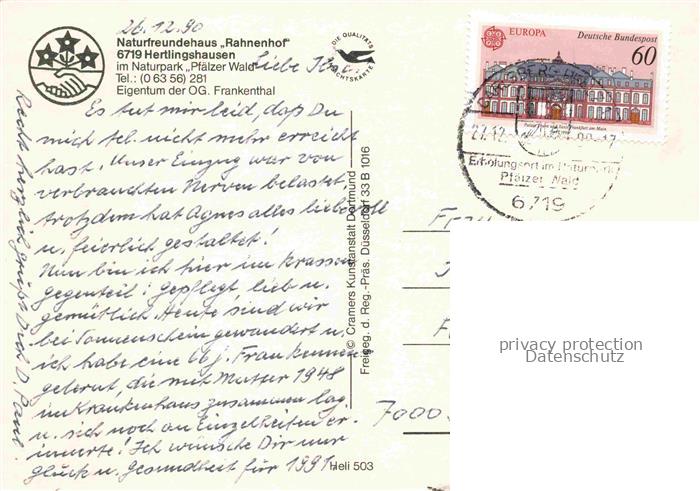 26.12.90
Naturfreundehaus „Rahnenhof"
6719 Hertlingshausen
im Naturpark „Pfälzer Wald"
Tel.: (0 63 56) 281
Eigentum der OG. Frankenthal
DIE QUALITÄTS
ECHTSKARTE
EUROPA
Deutsche Bundespost
60
Erholungsort im Naturpark
Pfälzer Wald
6719
Liebe
Es tut mir leid, daß Du
mich tel. nicht mehr erreicht
hast. Unser Einzug war von
verbrauchten Nerven belastet,
trotzdem hat Agnes alles liebevoll
u. feierlich gestaltet!
Nun bin ich hier im krassen
gegenteil: gepflegt lieb u.
gemütlich. Heute sind wir
bei Sonnenschein gewandert u.
ich habe eine 66 j. Frau kennen-
gelernt, die mit Mutter 1948
im Krankenhaus zusammen lag
u. sich noch an Einzelheiten er-
innerte! Ich wünsche Dir nur
glück u. gesundheit für 1991.
Recht herzlich grüßt Dich D.
© Cramers Kunstanstalt Dortmund
Freigeg. d. Reg.-Präs. Düsseldorf 33 B 1016
Heli 503
Frau
7000
privacy protection
Datenschutz